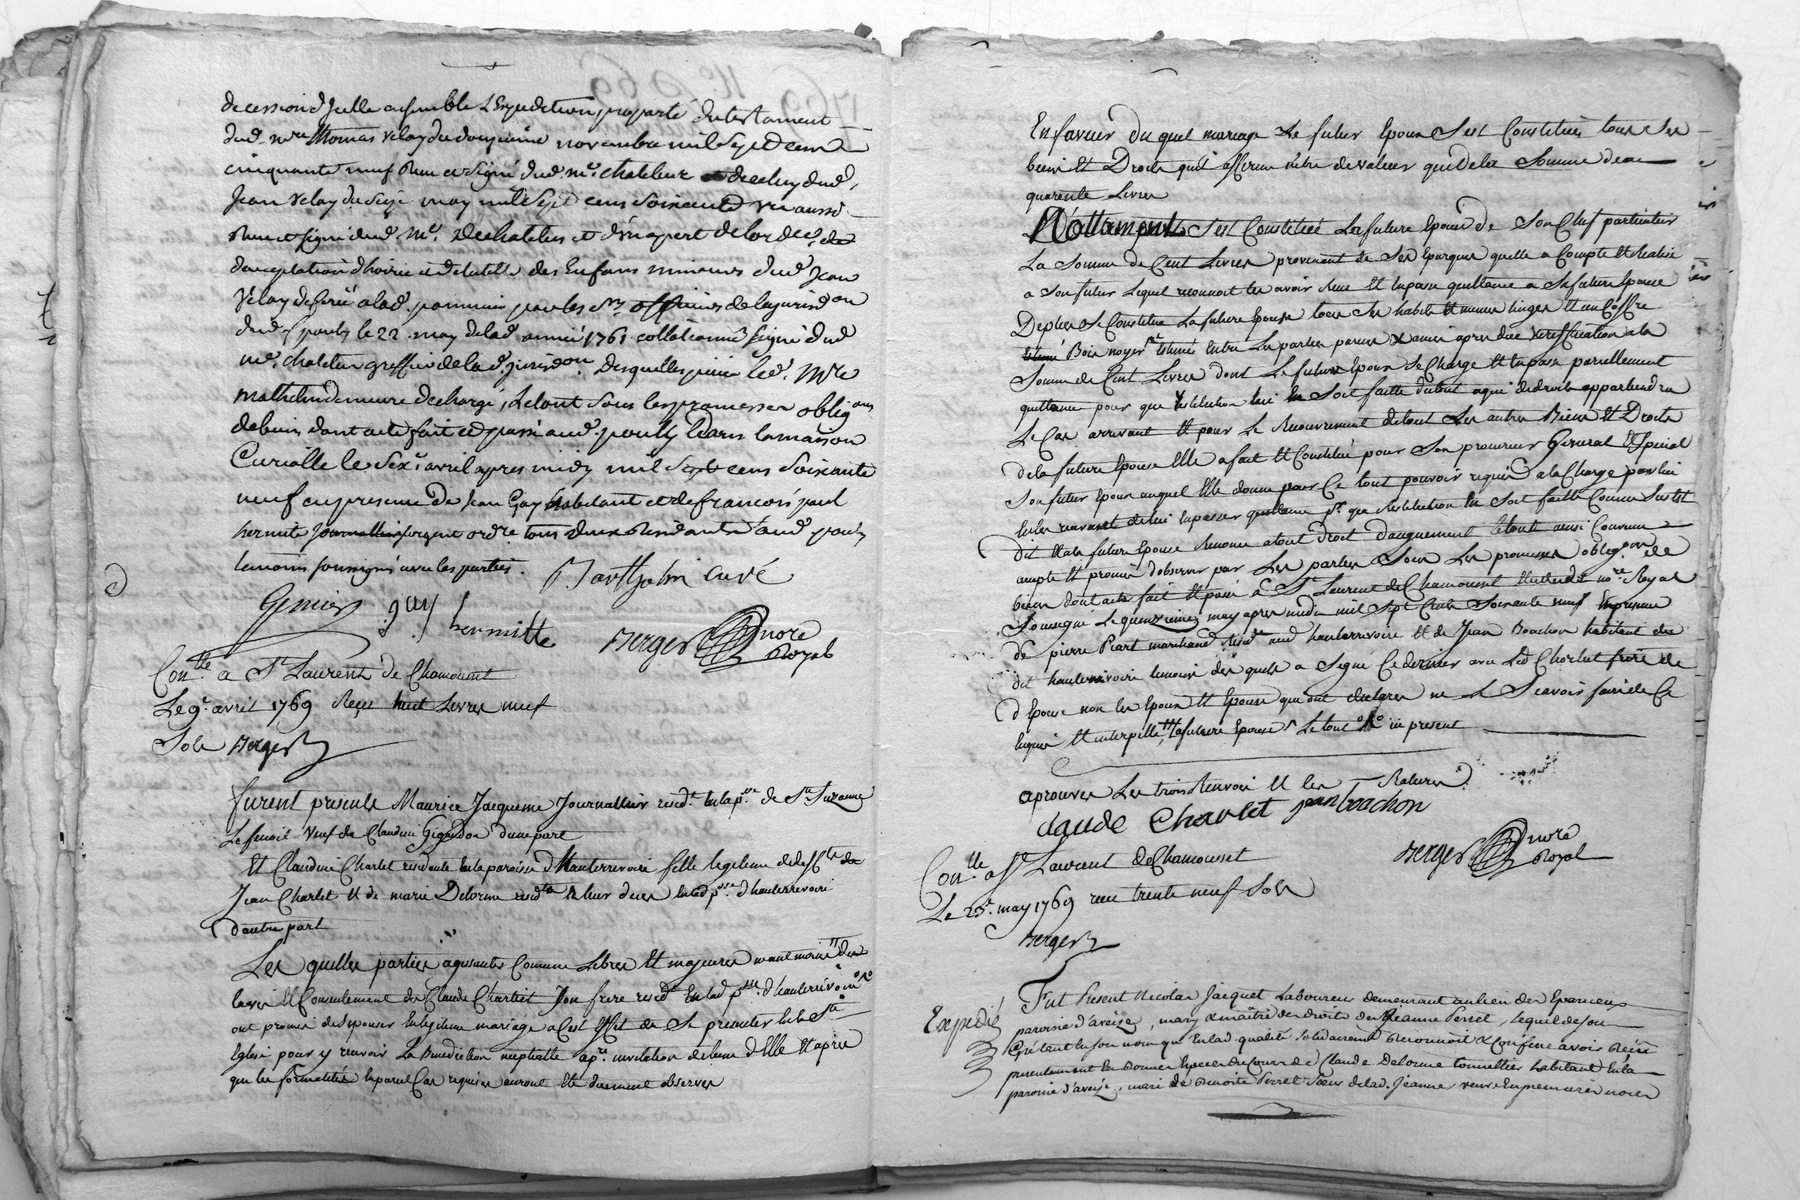 de cession d'Icelle ensemble L'Expedition raporté du testament
dud. mre Thomas Velay du douzieme novembre mil Sept cens
cinquante neuf Reçu et signé dud. me. chatelus dud.
Jean Velay du Seize may mil Sept cens Soixante un aussi
Reçu et signé dud. Me. Dechatelus et
dacceptation d'hoirie et de tutelle des Enfans mineurs dud. Jean
Velay deferé par les Srs officiers de la jurisdon
dud. le 22 may de lad. année 1761 collationné signé dud
me. chatelus greffier de lad. jurisdon. Desquelles pieces led. Mre
mathelin demeure dechargé, Le tout Sous les promesses obligons
de biens dont acte fait et passé aud. pouilly dans la maison
Curialle le Six avril apres midy mil Sept cens Soixante
neuf en presence de Jean Gay habitant et de francois paul
hermite tous deux Residants aud. pouilly
temoins soussignés avec les parties. Barthelmi curé
Genier gay hermitte Berger nore Royal
Conlle. a St Laurent de Chamousset
Le 9e. avril 1769 Reçu huit Livres neuf
Sols Berger
furent presents Maurice Jacqueme Journallier residt. en la psse. de Ste Suzanne
Veuf de Claudine d'une part
Et Claudine Charlet residente en la paroisse d'hauterrevoire fille legitime de deffts
Jean Charlet et de marie Delorme residts a leur deces en lad psse d'hauterrivoire
d'autre part
Les quelles parties agissantes Comme Libres Et majeures
lavis Et Consentement de Claude Charlet Son frere residt. en lad psse. d'hauterrivoire
ont promis de Sepouser en legitime mariage a Cest Effet de Se presenter en Ste
Eglise pour y recevoir La Benediction nuptialle a pre. invitation de lune d'Elle Et apres
que les formalités en pareil Cas requises auront Eté duement observées
En faveur du quel mariage Le futur Epoux S'est Constitués tous Ses
biens Et Droits quil assure n'etre de valeur que de la Somme de
quarente Livres
Nottamment S'est Constituée La future Epouse de Son Chef particulier
La Somme de Cent Livres provenant de Ses Epargnes quelle a Compté Et realisé
a Son futur Lequel reconnoit les avoir Reçu Et en passe quittance a Sa future Epouse
De plus Se Constitue La future Epouse tous Ses habits Et menus linges Et un Coffre
Bois noyer estimé Entre Les parties a la
Somme de Cent Livres dont Le futur Epoux Se Charge Et en passe pareillement
quittance pour que restitution Soit faitte du tout a qui de droit appartiendra
Le Cas arrivant Et pour Le Recouvrement de tout Les autres Biens Et Droits
de la future Epouse Elle a fait Et Constitué pour Son procureur General Et Special
Son futur Epoux auquel Elle donne pour Ce tout pouvoir requis a la Charge par lui
les recevant de lui en passer quittance pr. que restitution En Soit faitte Comme Sus Est
dit Et la future Epouse Renonce a tout Droit d'augment Le tout ainsi Convenu
accepté Et promis d'observer par Les parties Sous Les promesses obligons de
biens dont acte fait Et passé a St. Laurent de Chamousset Etude du dit nore. Royal
Soussigné Le quinzieme may apres midi mil Sept Cents Soixante neuf En presence
de pierre Picart marchand Residt aud hauterrivoire Et de Jean Bouchon habitant du
dit hauterrivoire temoins des quels a Signé Ce dernier avec Led Charlet frere de
d Epouse non les Epoux Et Epouse qui ont declarés ne Le Scavoir faire de Ce
enquis Et interpellés
aprouver Les trois Renvoi Et les Ratures
claude Charlet jean bouchon
Berger nore Royal
Conlle. a St Laurent de Chamousset
Le 23e. may 1769 reçu trente neuf Sols
Berger
Expedié
Fut Present Nicolas Jacquet Laboureur demeurant au lieu des
paroisse d'aveize, mary & maitre des droits de Jeanne Perret, lequel de son
Gré tant en son nom que en lad qualité solidairement Reconnoit & Confesse avoir Reçu
presentement En Bonnes Especes du Cours de Claude Delorme tonnellier habitant En la
paroisse d'aveize, mari de Benoite Perret Sœur de lad. Jeanne